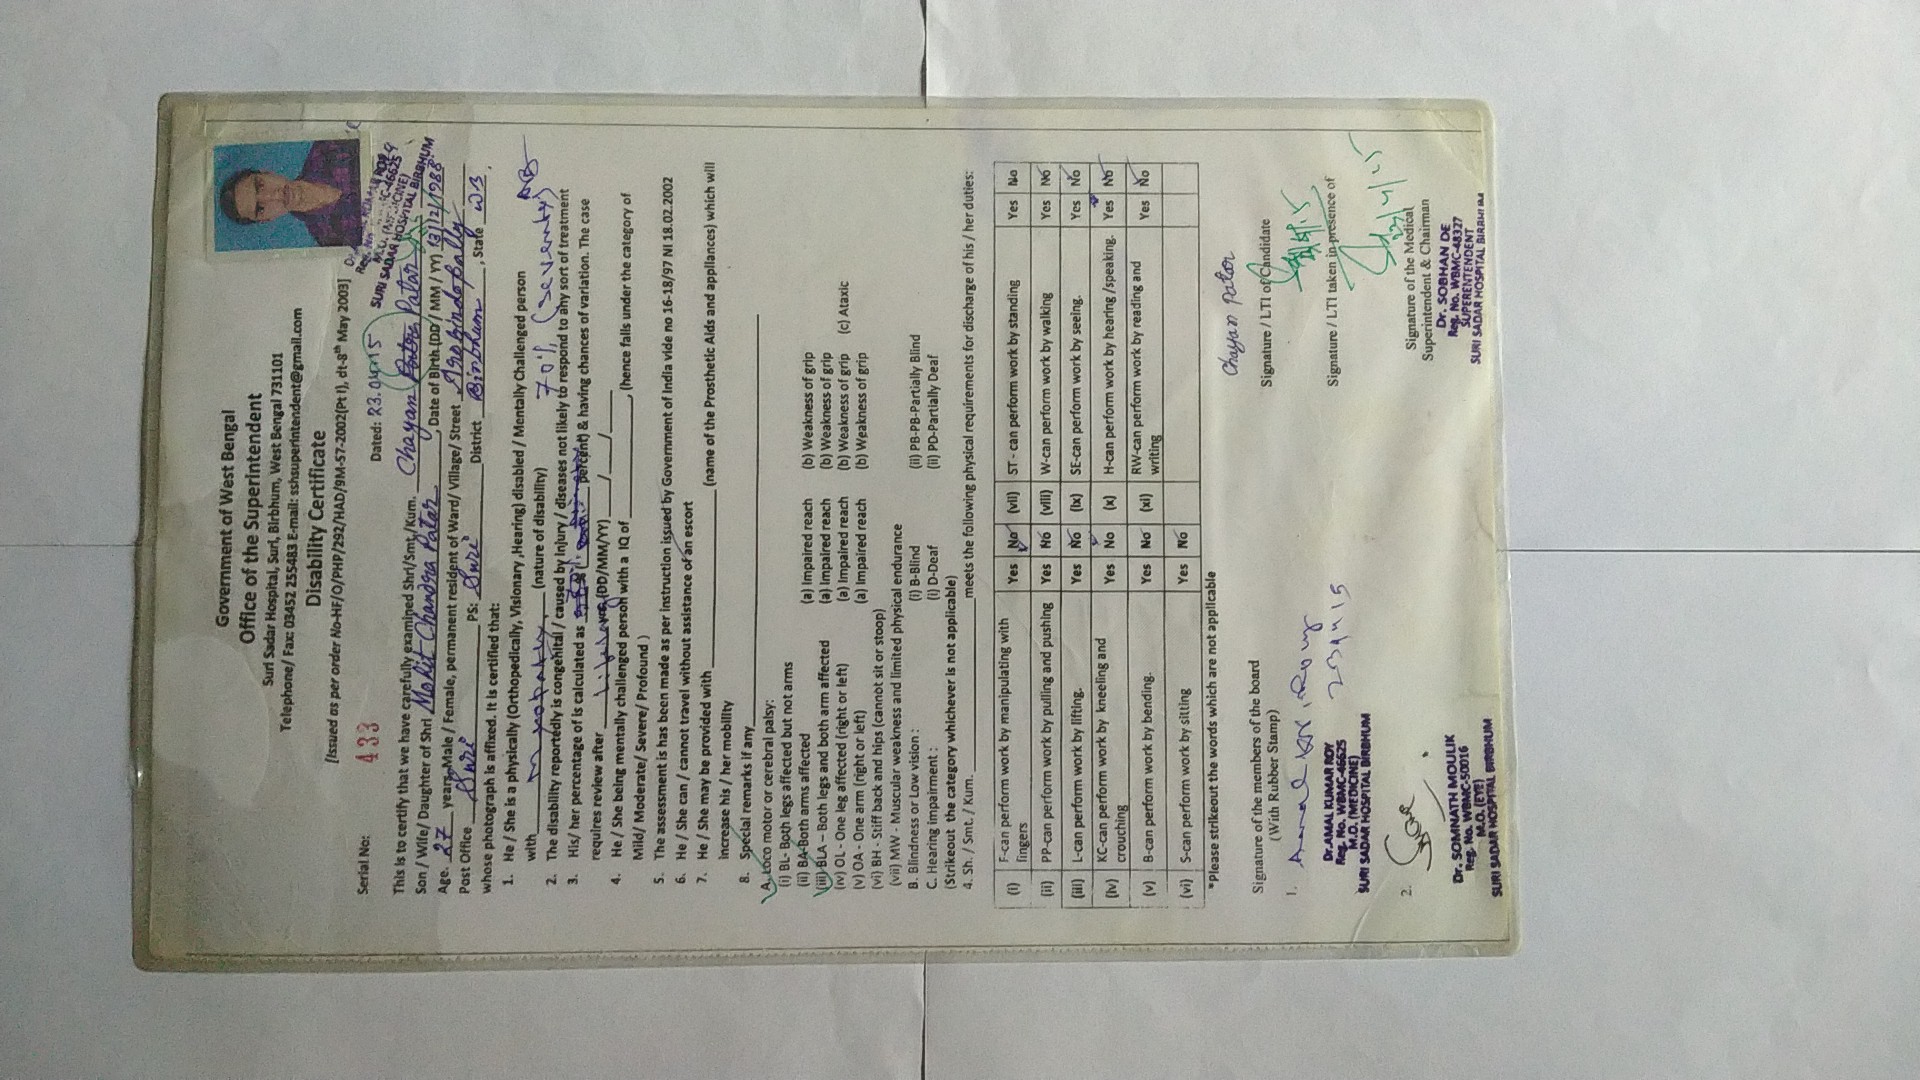 Government of West Bengal
Office of the Superintendent
Suri Sadar Hospital, Suri, Birbhum, West Bengal 731101
Telephone/ Fax: 03452 255483 E-mail: sshsuperintendent@gmail.com
Disability Certificate
[Issued as per order No-HF/O/PHP/292/HAD/9M-57-2002(Pt I), dt-8th May 2003]
Serial No: 433 Dated: 23.04.15
SURI SADAR HOSPITAL BIRBHUM
This is to certify that we have carefully examined Shri/Smt./Kum. Chayan Patar
Son / Wife/ Daughter of Shri Mohit Chandra Patar, Date of Birth (DD/ MM / YY) 13/12/1988
Age. 27 years, Male / Female, permanent resident of Ward/ Village/ Street
Post Office Suri PS: Suri District Birbhum, State WB.
whose photograph is affixed. It is certified that:
1. He / She is a physically (Orthopedically, Visionary ,Hearing) disabled / Mentally Challenged person
with (nature of disability) 70% (seventy)
2. The disability reportedly is congenital / caused by injury / diseases not likely to respond to any sort of treatment
3. His/ her percentage of is calculated as percent) & having chances of variation. The case
requires review after (DD/MM/YY) / /
4. He / She being mentally challenged person with a IQ of , (hence falls under the category of
Mild/ Moderate/ Severe/ Profound )
5. The assessment is has been made as per instruction issued by Government of India vide no 16-18/97 NI 18.02.2002
6. He / She can / cannot travel without assistance of an escort
7. He / She may be provided with (name of the Prosthetic Aids and appliances) which will
increase his / her mobility
8. Special remarks if any
A. Loco motor or cerebral palsy:
(i) BL- Both legs affected but not arms
(ii) BA-Both arms affected (a) Impaired reach (b) Weakness of grip
(iii) BLA – Both legs and both arm affected (a) Impaired reach (b) Weakness of grip
(iv) OL - One leg affected (right or left) (a) Impaired reach (b) Weakness of grip (c) Ataxic
(v) OA - One arm (right or left) (a) Impaired reach (b) Weakness of grip
(vi) BH - Stiff back and hips (cannot sit or stoop)
(vii) MW - Muscular weakness and limited physical endurance
B. Blindness or Low vision : (i) B-Blind (ii) PB-PB-Partially Blind
C. Hearing impairment : (i) D-Deaf (ii) PD-Partially Deaf
(Strikeout the category whichever is not applicable)
4. Sh. / Smt. / Kum. meets the following physical requirements for discharge of his / her duties:
(i) F-can perform work by manipulating with fingers Yes No (vii) ST - can perform work by standing Yes No
(ii) PP-can perform work by pulling and pushing Yes No (viii) W-can perform work by walking Yes No
(iii) L-can perform work by lifting. Yes No (ix) SE-can perform work by seeing. Yes No
(iv) KC-can perform work by kneeling and crouching Yes No (x) H-can perform work by hearing /speaking. Yes No
(v) B-can perform work by bending. Yes No (xi) RW-can perform work by reading and writing Yes No
(vi) S-can perform work by sitting Yes No
*Please strikeout the words which are not applicable
Chayan Patar
Signature of the members of the board Signature / LTI of Candidate
(With Rubber Stamp)
1. Amal Kr. Roy 23/4/15
Signature / LTI taken in presence of
Dr.AMAL KUMAR ROY
Reg. No. WBMC-46625
M.O. (MEDICINE)
SURI SADAR HOSPITAL BIRBHUM
23/4/15
Signature of the Medical
Superintendent & Chairman
2.
Dr. SOBHAN DE
Reg. No. WBMC-48327
SUPERENTENDENT
SURI SADAR HOSPITAL BIRBHUM
Dr. SOMNATH MOULIK
Reg. No. WBMC-50016
M.O. (EYE)
SURI SADAR HOSPITAL BIRBHUM